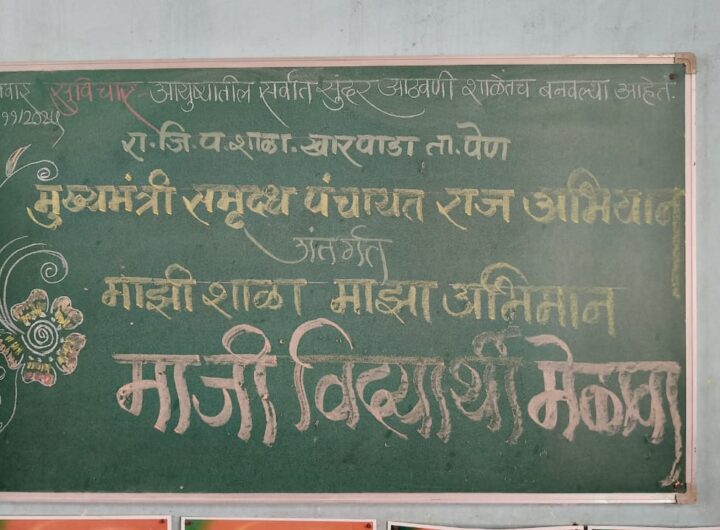 सुविचार- आयुष्यातील सर्वात सुंदर आठवणी शाळेतच बनवल्या आहेत.
रा.जि.प.शाळा.खारपाडा ता.पेण
मुख्यमंत्री समृध्द पंचायत राज अभियान
अंतर्गत
माझी शाळा माझा अभिमान
माजी विद्यार्थी मेळावा